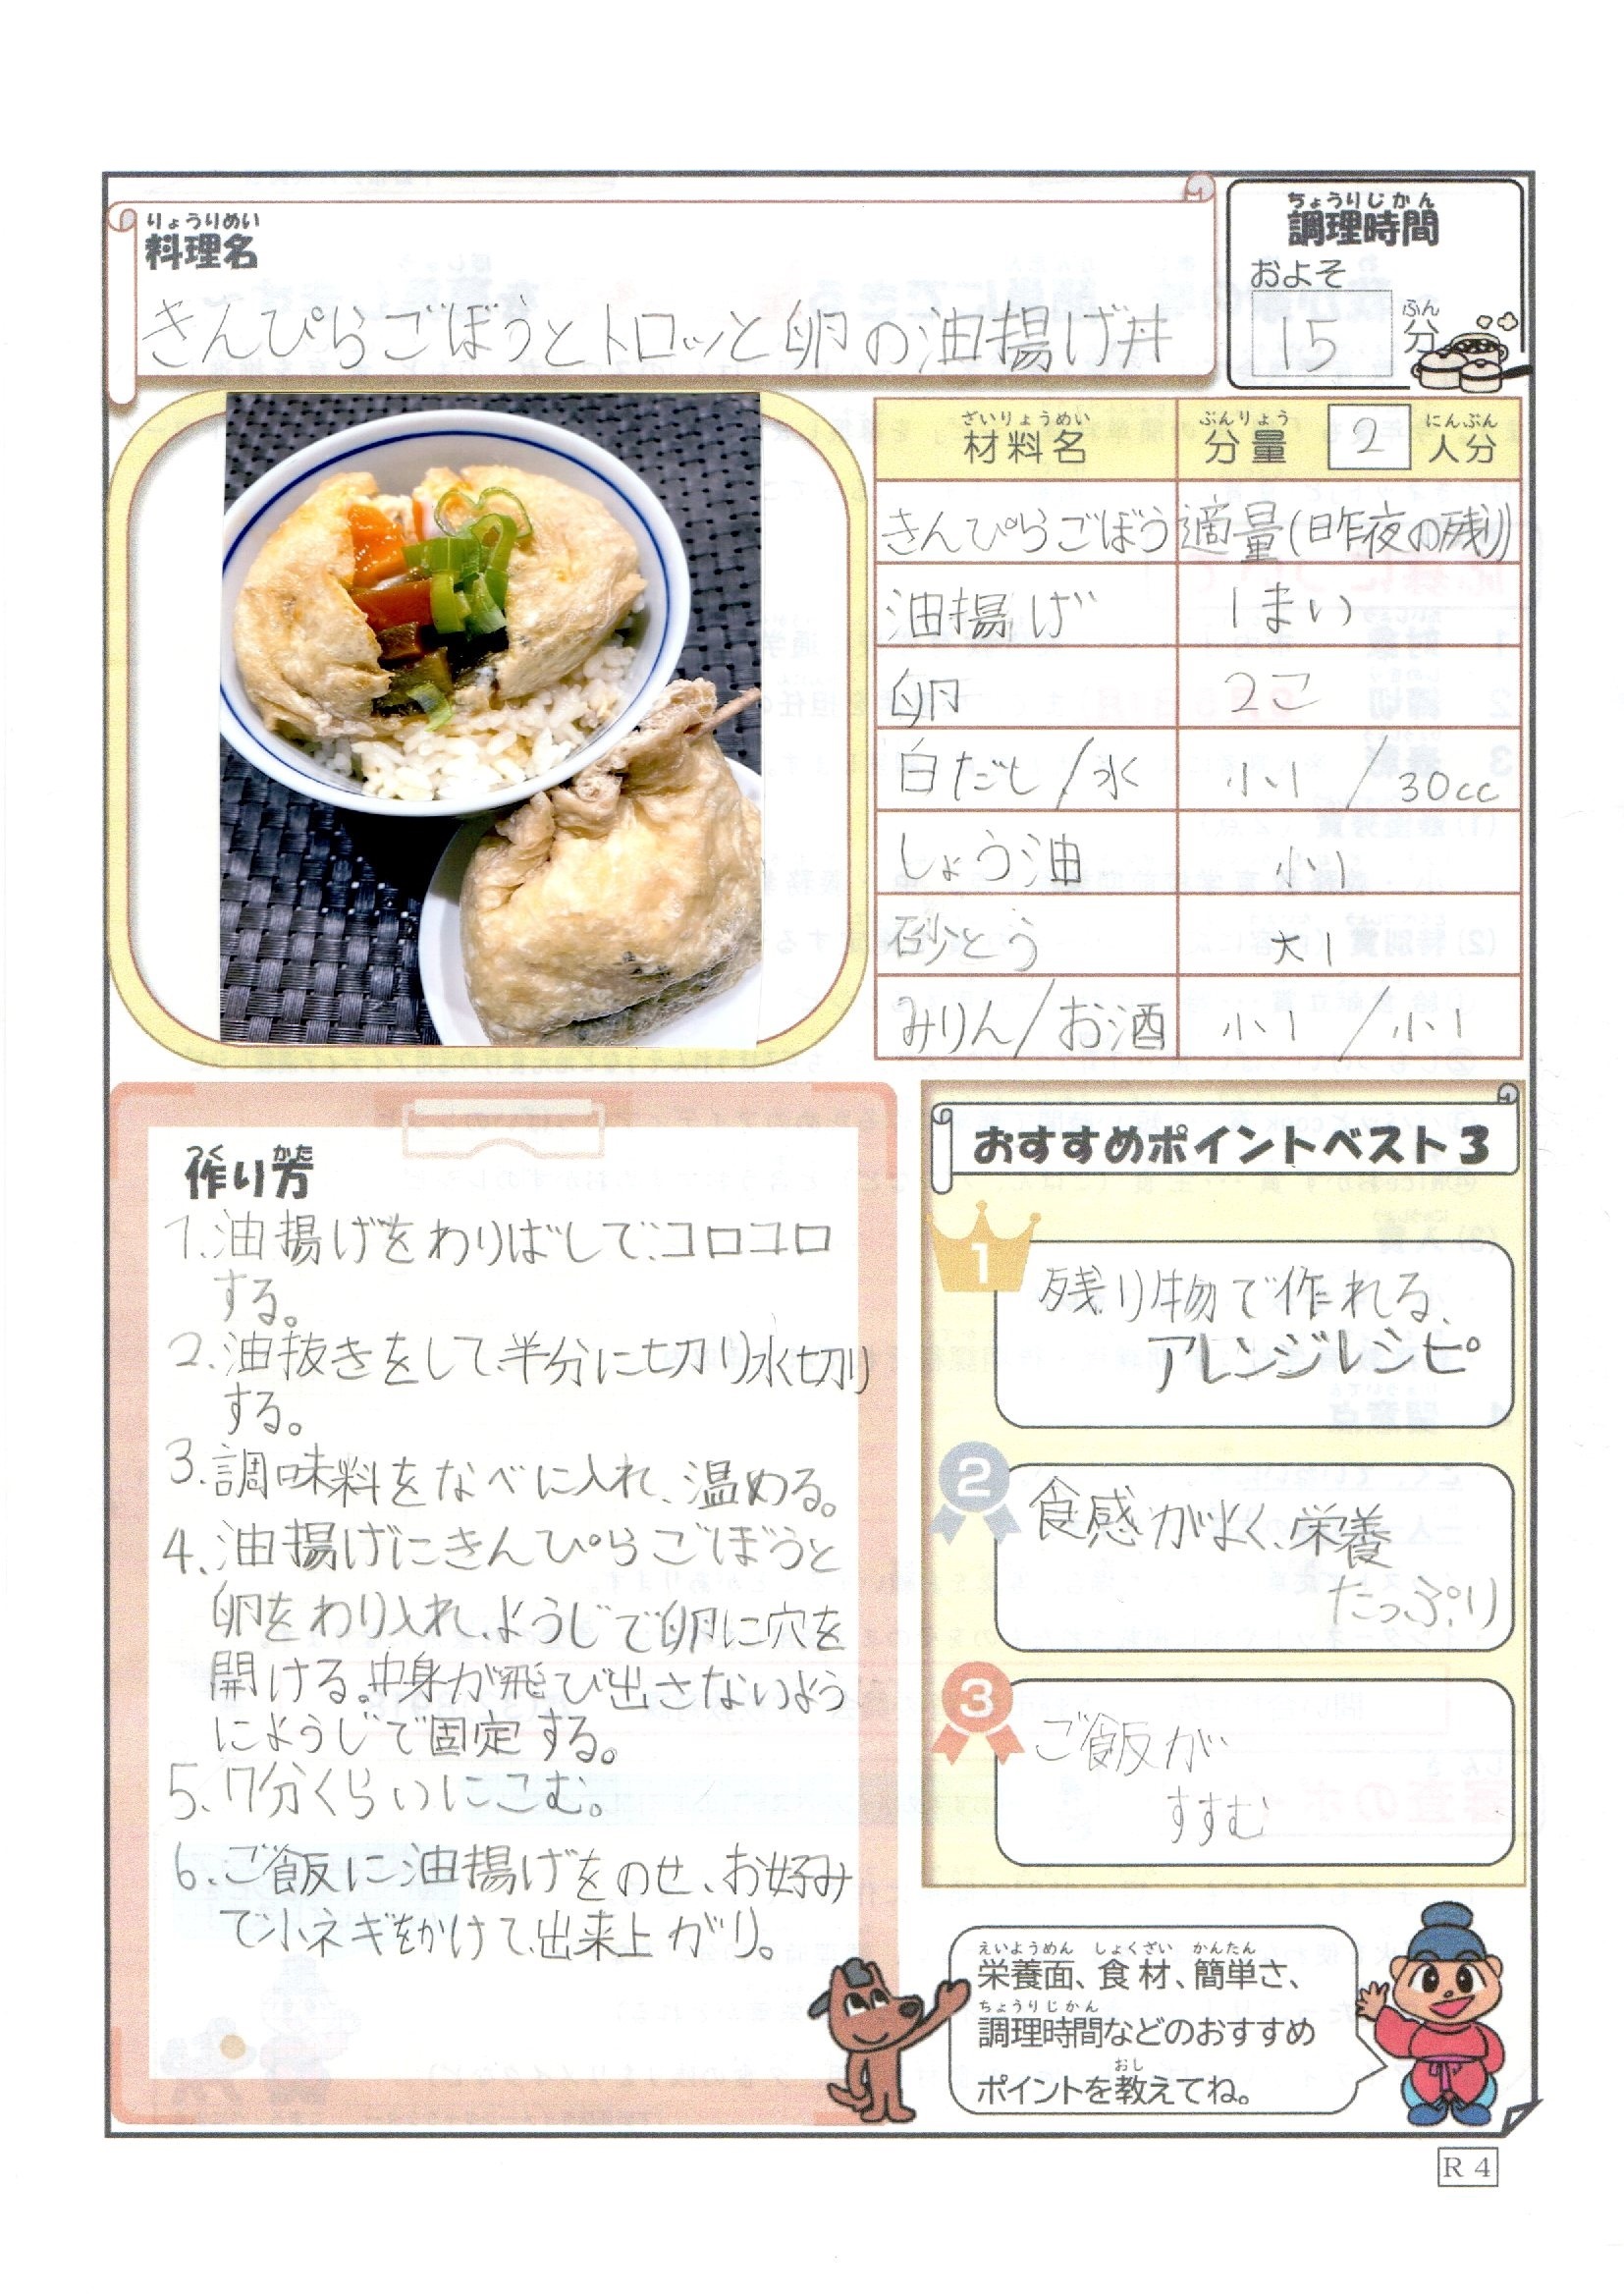 りょうりめい
料理名
きんぴらごぼうとトロッと卵の油揚げ丼
ちょうりじかん
調理時間
およそ
15
ふん
分
ざいりょうめい
材料名
ぶんりょう
分量
2
にんぶん
人分
きんぴらごぼう 適量(昨夜の残り)
油揚げ 1まい
卵 2こ
白だし/水 小1/30cc
しょう油 小1
砂とう 大1
みりん/お酒 小1/小1
つく かた
作り方
1.油揚げをわりばしで、コロコロ
する。
2.油抜きをして、半分に切り水切り
する。
3.調味料をなべに入れ、温める。
4.油揚げにきんぴらごぼうと
卵をわり入れ、ようじで卵に穴を
開ける。中身が飛び出さないよう
にようじで固定する。
5.7分くらいにこむ。
6.ご飯に油揚げをのせ、お好み
で小ネギをかけて、出来上がり。
おすすめポイントベスト3
1
残り物で作れる、
アレンジレシピ
2
食感がよく、栄養
たっぷり
3
ご飯が
すすむ
えいようめん しょくざい かんたん
栄養面、食材、簡単さ、
ちょうりじかん
調理時間などのおすすめ
おし
ポイントを教えてね。
R 4